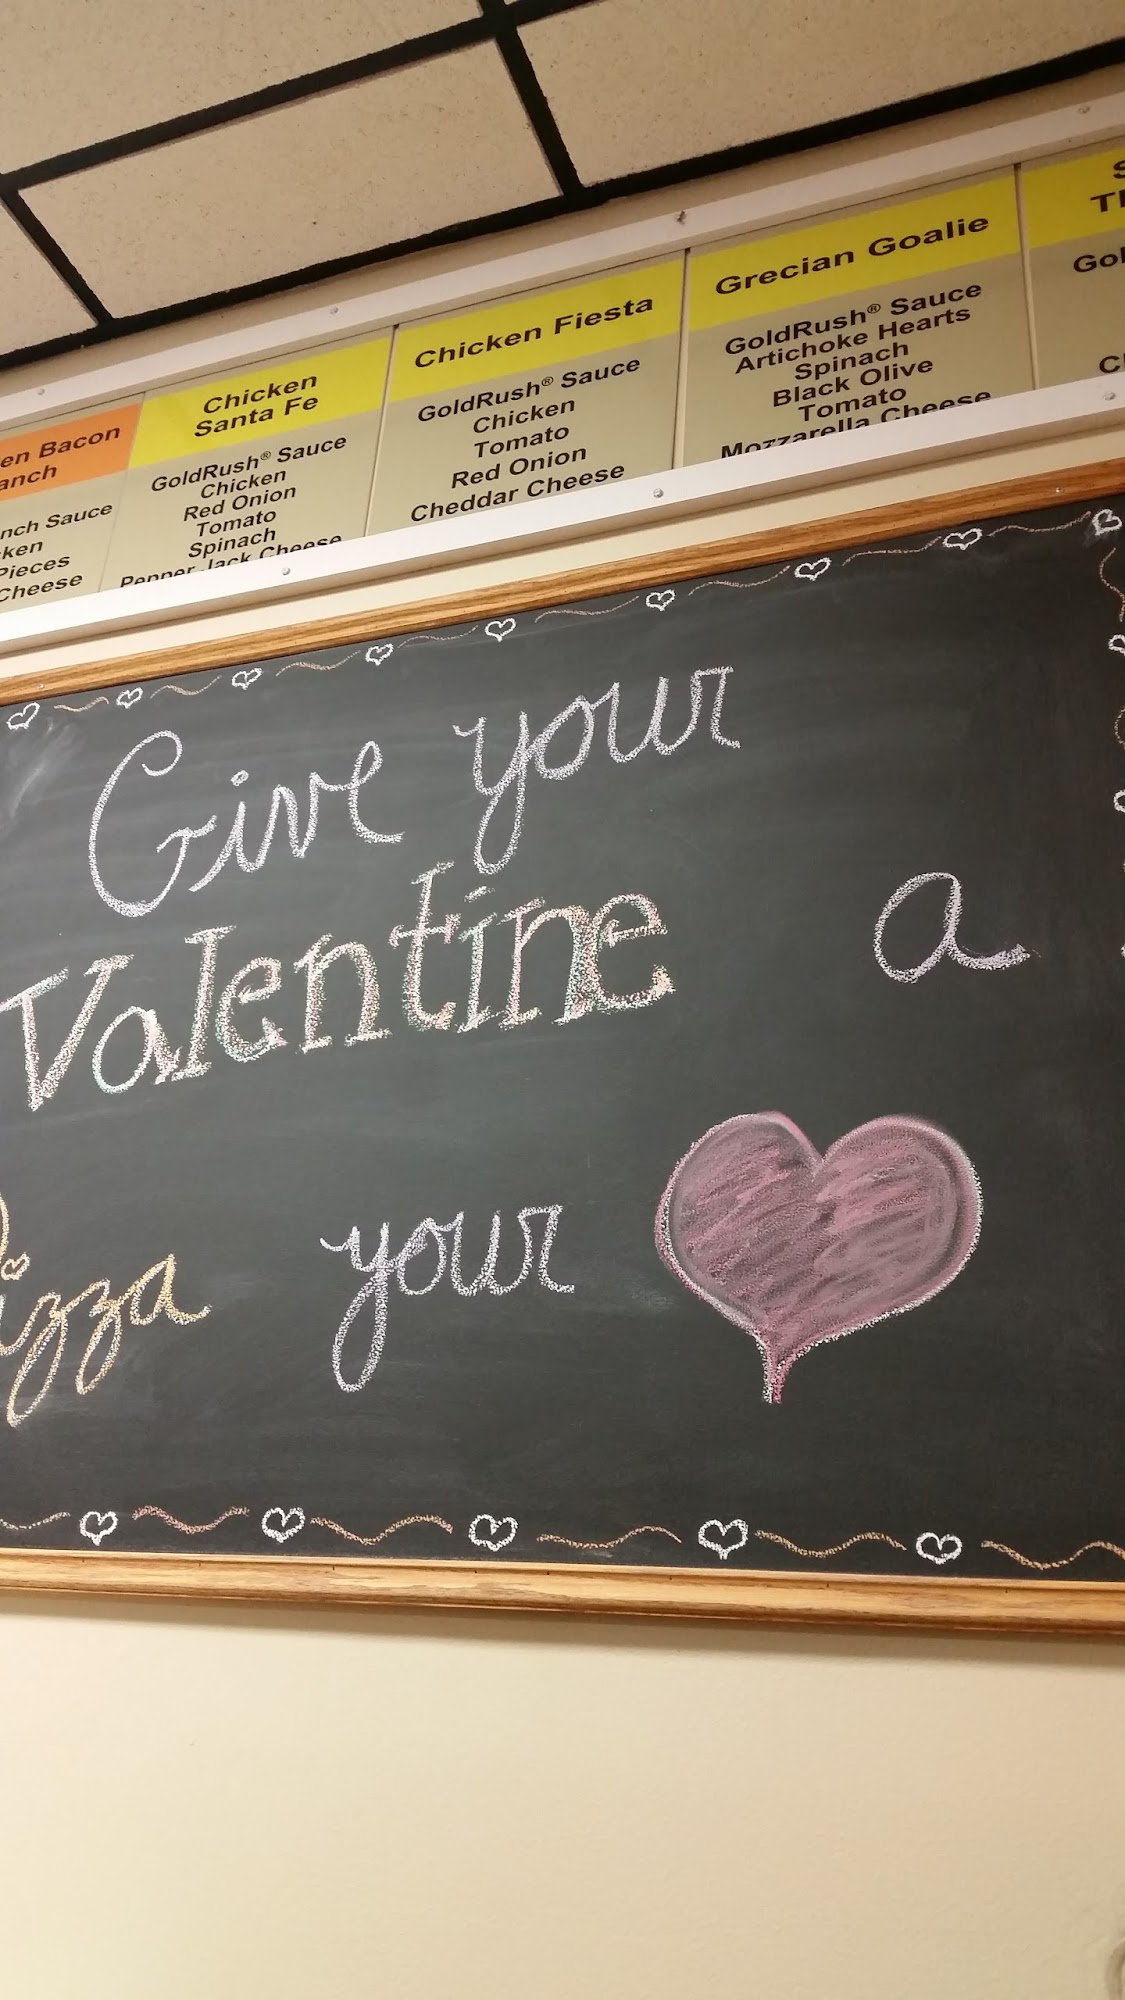 Bacon
Sauce
Pieces
Cheese
Chicken
Santa Fe
GoldRush® Sauce
Chicken
Red Onion
Tomato
Spinach
Pepper Jack Cheese
Chicken Fiesta
GoldRush® Sauce
Chicken
Tomato
Red Onion
Cheddar Cheese
Grecian Goalie
GoldRush® Sauce
Artichoke Hearts
Spinach
Black Olive
Tomato
Mozzarella Cheese
Give your
Valentine a
Pizza your